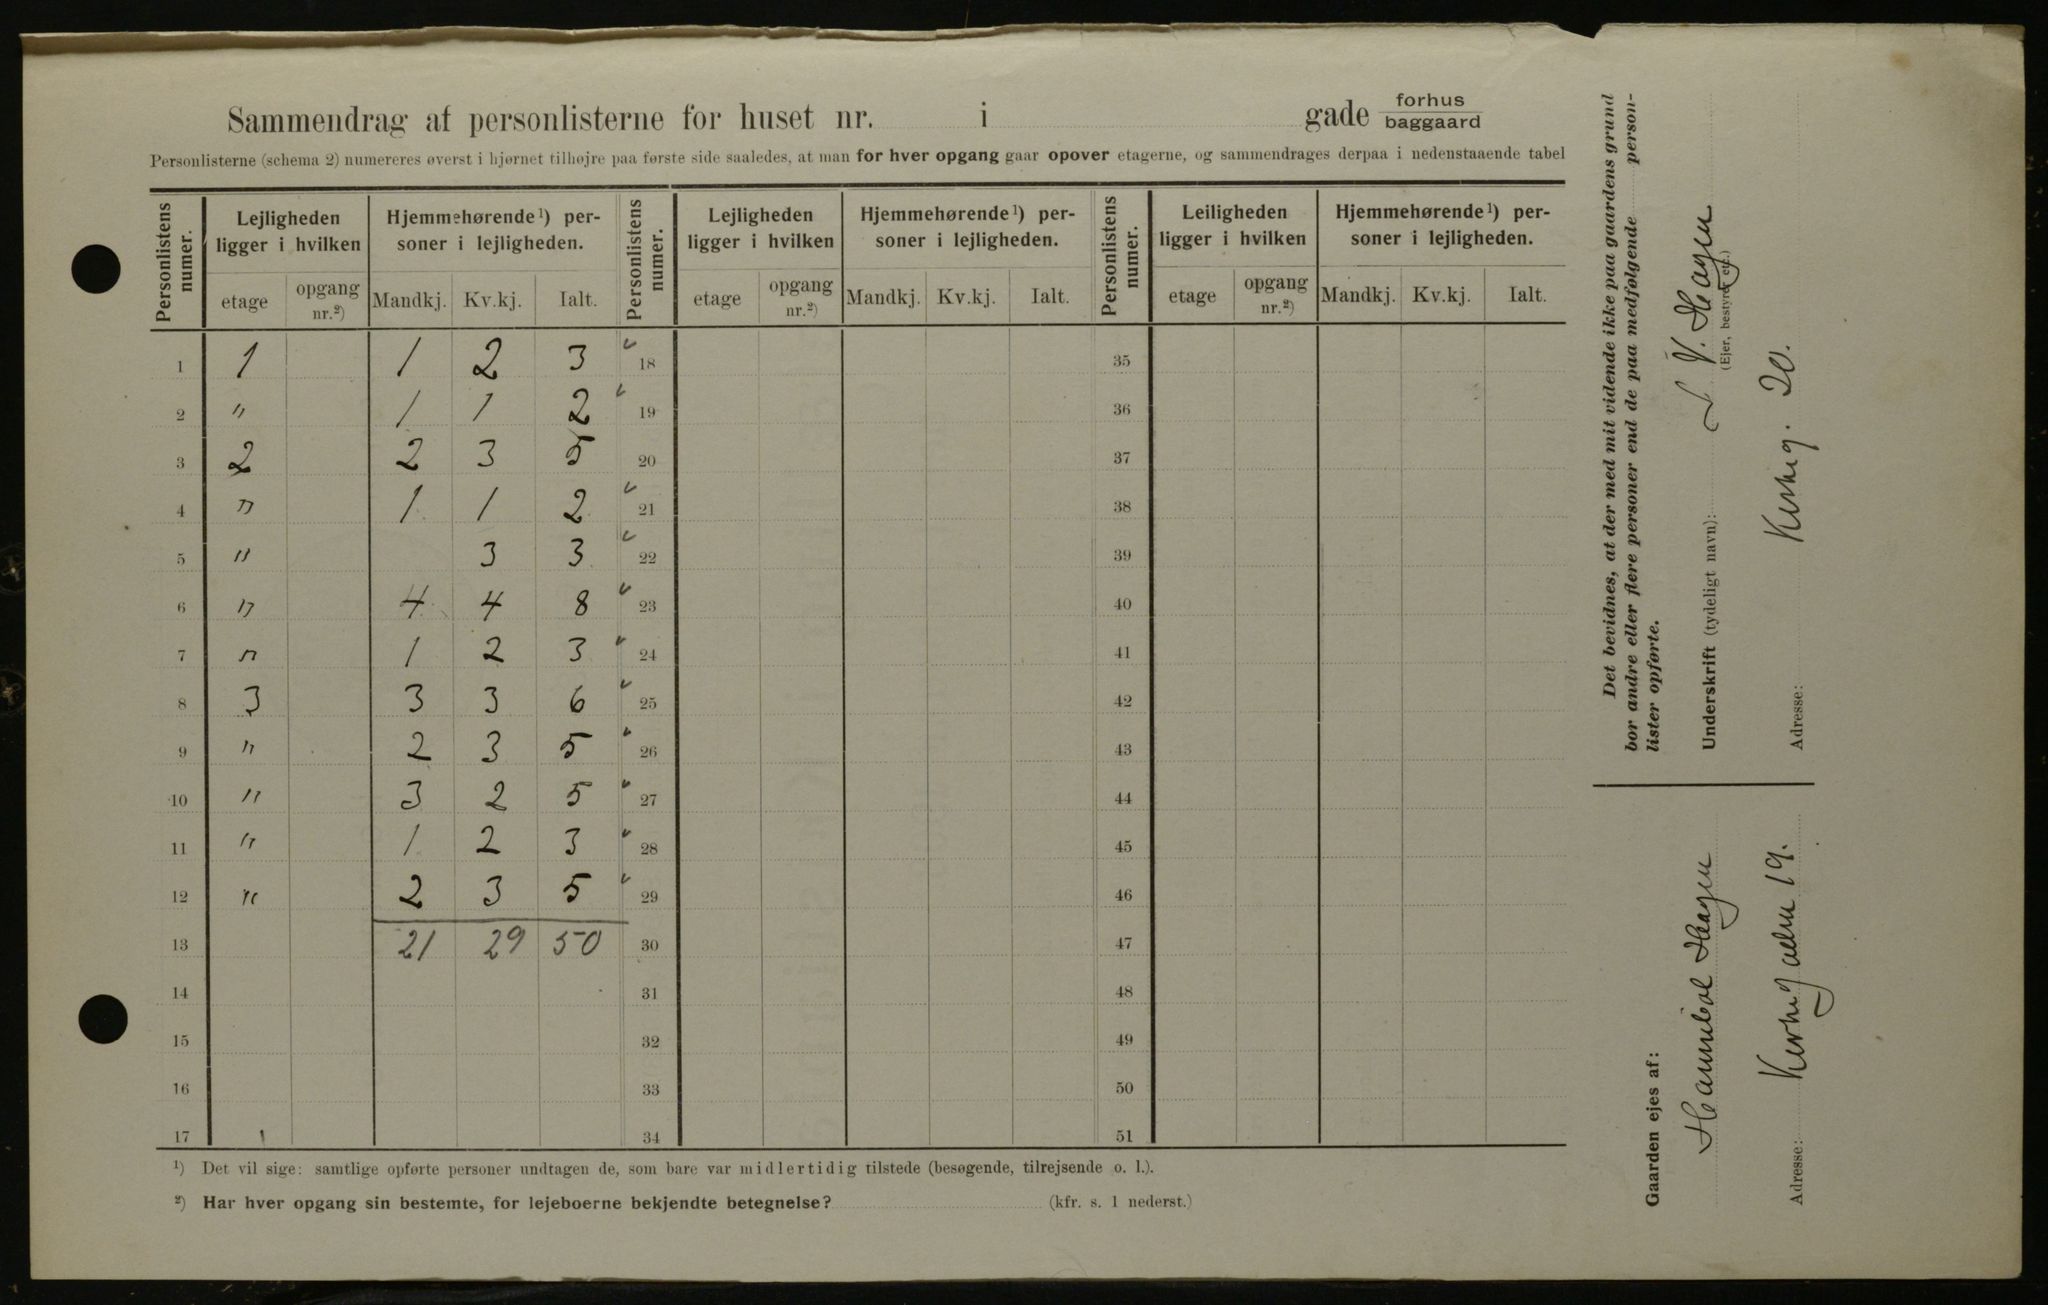 Sammendrag af personlisterne for huset nr. i gade forhus baggaard
Personlisterne (schema 2) numereres øverst i hjørnet tilhøjre paa første side saaledes, at man for hver opgang gaar opover etagerne, og sammendrages derpaa i nedenstaaende tabel
Personlistens numer. Lejligheden ligger i hvilken Hjemmehørende ¹) personer i lejligheden. Personlistens numer. Lejligheden ligger i hvilken Hjemmehørende ¹) personer i lejligheden. Personlistens numer. Leiligheden ligger i hvilken Hjemmehørende ¹) personer i lejligheden.
etage opgang nr.²) Mandkj. Kv.kj. Ialt. etage opgang nr.²) Mandkj. Kv.kj. Ialt. etage opgang nr.²) Mandkj. Kv.kj. Ialt.
1 1 1 2 3 18 35
2 " 1 1 2 19 36
3 2 2 3 5 20 37
4 " 1 1 2 21 38
5 " 3 3 22 39
6 " 4 4 8 23 40
7 " 1 2 3 24 41
8 3 3 3 6 25 42
9 " 2 3 5 26 43
10 " 3 2 5 27 44
11 " 1 2 3 28 45
12 " 2 3 5 29 46
13 21 29 50 30 47
14 31 48
15 32 49
16 33 50
17 34 51
¹) Det vil sige: samtlige opførte personer undtagen de, som bare var midlertidig tilstede (besøgende, tilrejsende o. l.).
²) Har hver opgang sin bestemte, for lejeboerne bekjendte betegnelse? (kfr. s. 1 nederst.)
Det bevidnes, at der med mit vidende ikke paa gaardens grund
bor andre eller flere personer end de paa medfølgende person-
lister opførte.
Underskrift (tydeligt navn): V. Hagen
(Ejer, bestyrer etc.)
Adresse: Kirkeg. 20.
Gaarden ejes af:
Hannibal Hagen
Adresse: Kirkegaden 19.